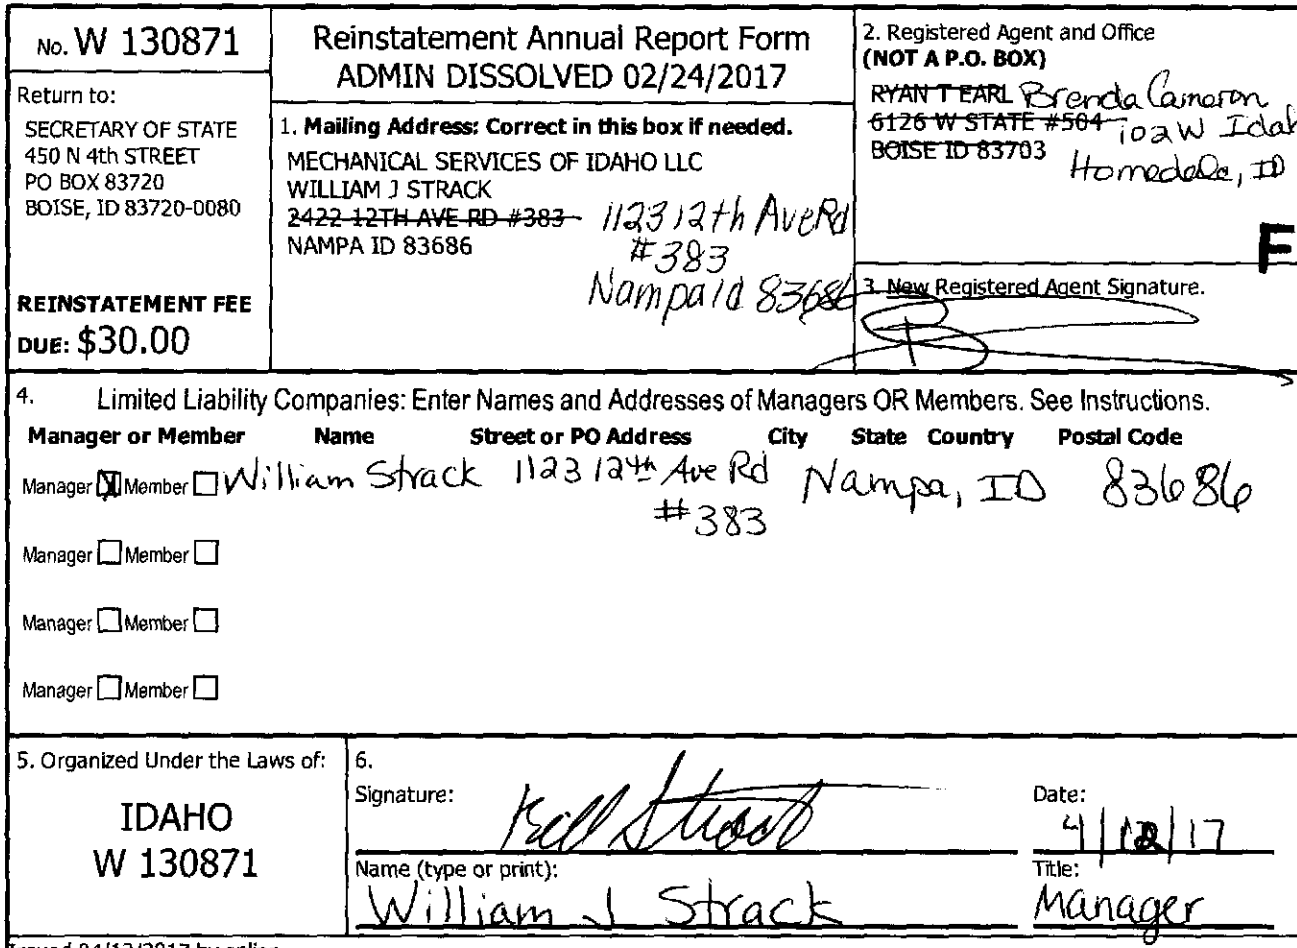 No. W 130871
Return to:
SECRETARY OF STATE
450 N 4th STREET
PO BOX 83720
BOISE, ID 83720-0080
REINSTATEMENT FEE
DUE: $30.00
Reinstatement Annual Report Form
ADMIN DISSOLVED 02/24/2017
1. Mailing Address: Correct in this box if needed.
MECHANICAL SERVICES OF IDAHO LLC
WILLIAM J STRACK
2422 12TH AVE RD #383
NAMPA ID 83686
1123 12th Ave Rd
#383
Nampa Id 83686
2. Registered Agent and Office
(NOT A P.O. BOX)
RYAN T EARL Brenda Cameron
6126 W STATE #504 102 W Idah
BOISE ID 83703
Homedale, ID
F
3. New Registered Agent Signature.
4. Limited Liability Companies: Enter Names and Addresses of Managers OR Members. See Instructions.
Manager or Member Name Street or PO Address City State Country Postal Code
Manager Member William Strack 1123 12th Ave Rd Nampa, ID 83686
#383
Manager Member
Manager Member
Manager Member
5. Organized Under the Laws of:
IDAHO
W 130871
6.
Signature: Bill Strack
Date: 4/12/17
Name (type or print):
William J Strack
Title:
Manager